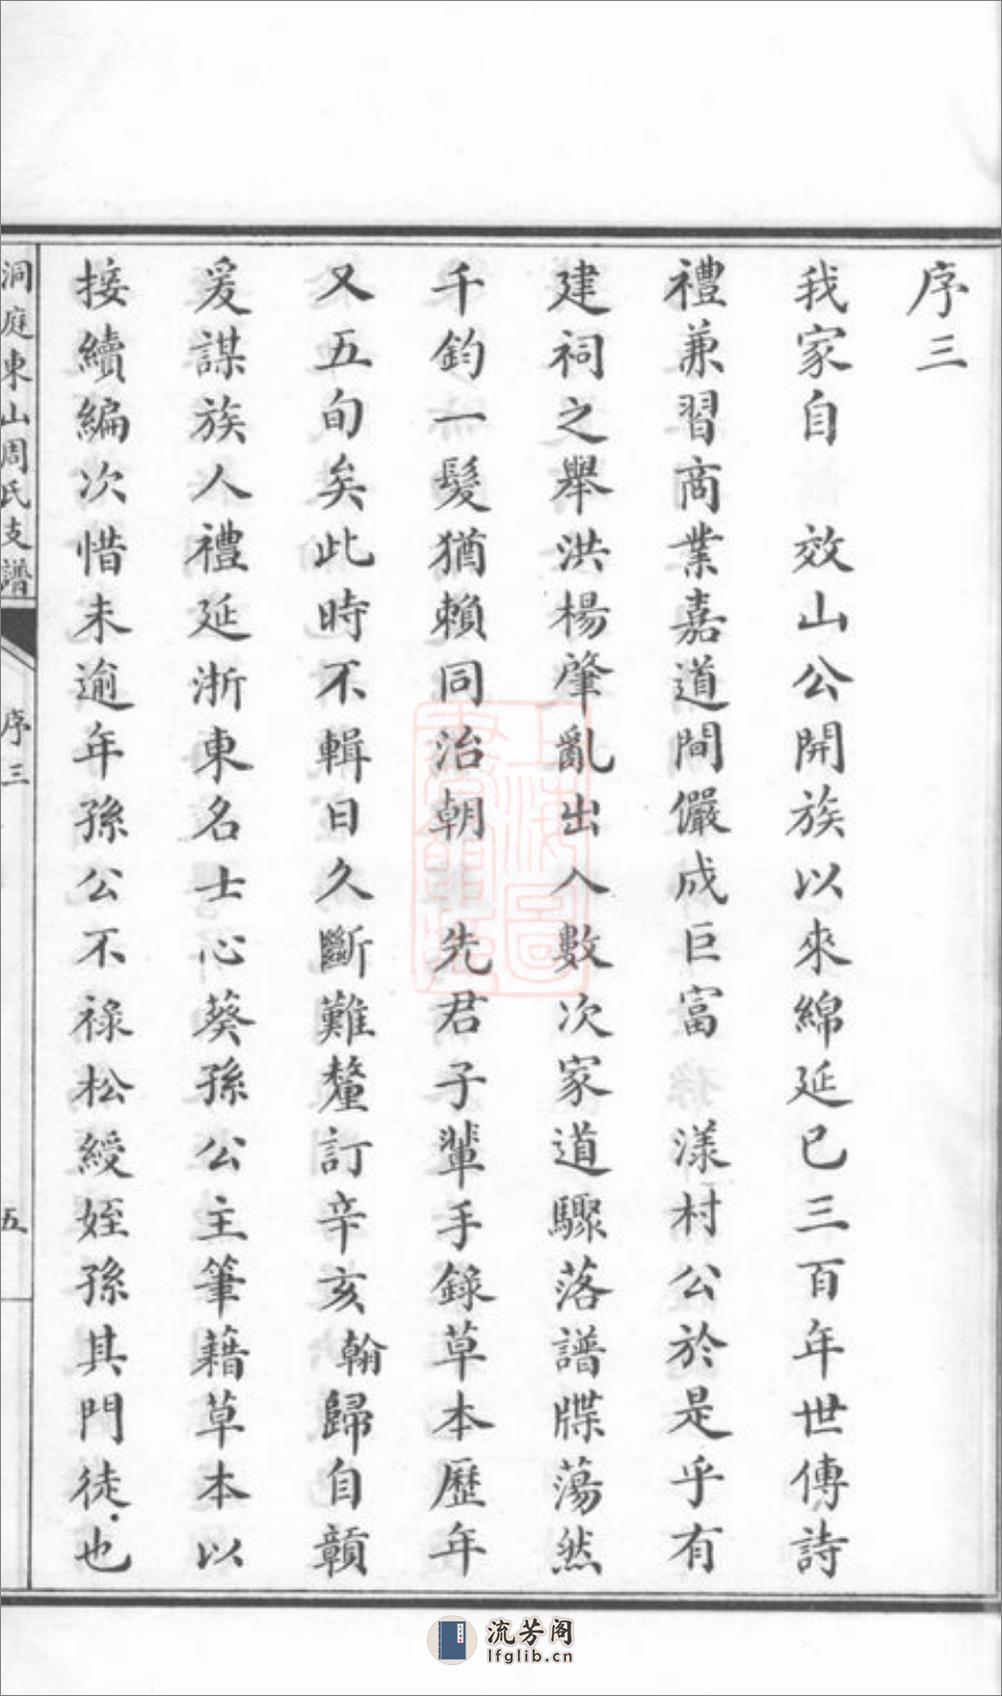 序三
我家自　效山公開族以來綿延已三百年世傳詩
禮兼習商業嘉道間儼成巨富　漾村公於是乎有
建祠之舉洪楊肇亂出入數次家道驟落譜牒蕩然
千鈞一髮猶賴同治朝　先君子輩手錄草本歷年
又五旬矣此時不輯日久斷難釐訂辛亥翰歸自贛
爰謀族人禮延浙東名士心葵孫公主筆藉草本以
接續編次惜未逾年孫公不祿松綬姪孫其門徒也
洞庭東山周氏支譜
序三
五
上海圖
書館藏
流芳阁
lfglib.cn